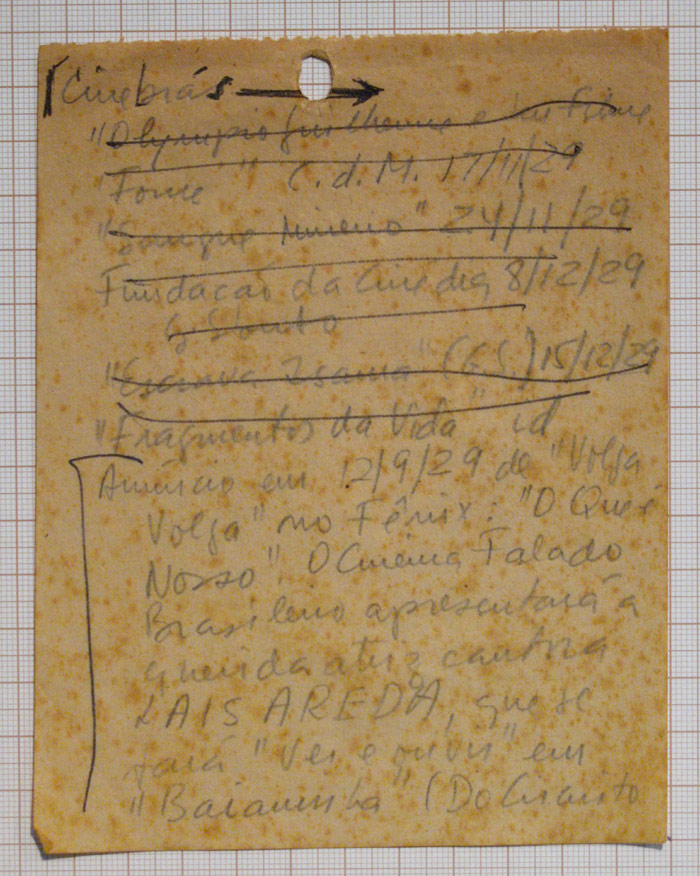 Cinebrás →
"Olympio Guilherme e seu filme
"Fome" " C. d. M. 17/11/29
"Sangue Mineiro" 24/11/29
Fundação da Cinédia 8/12/29
"Escrava Isaura" (G.S.) 15/12/29
"Fragmentos da Vida" id
Anúncio em 12/9/29 de "Volga
Volga" no Fênix: "O Que é
Nosso" O Cinema Falado
Brasileiro apresentará a
querida atriz cantora
LAIS AREDA, que se
fará "Ver e ouvir" em
"Baianinha" (Do Circuito